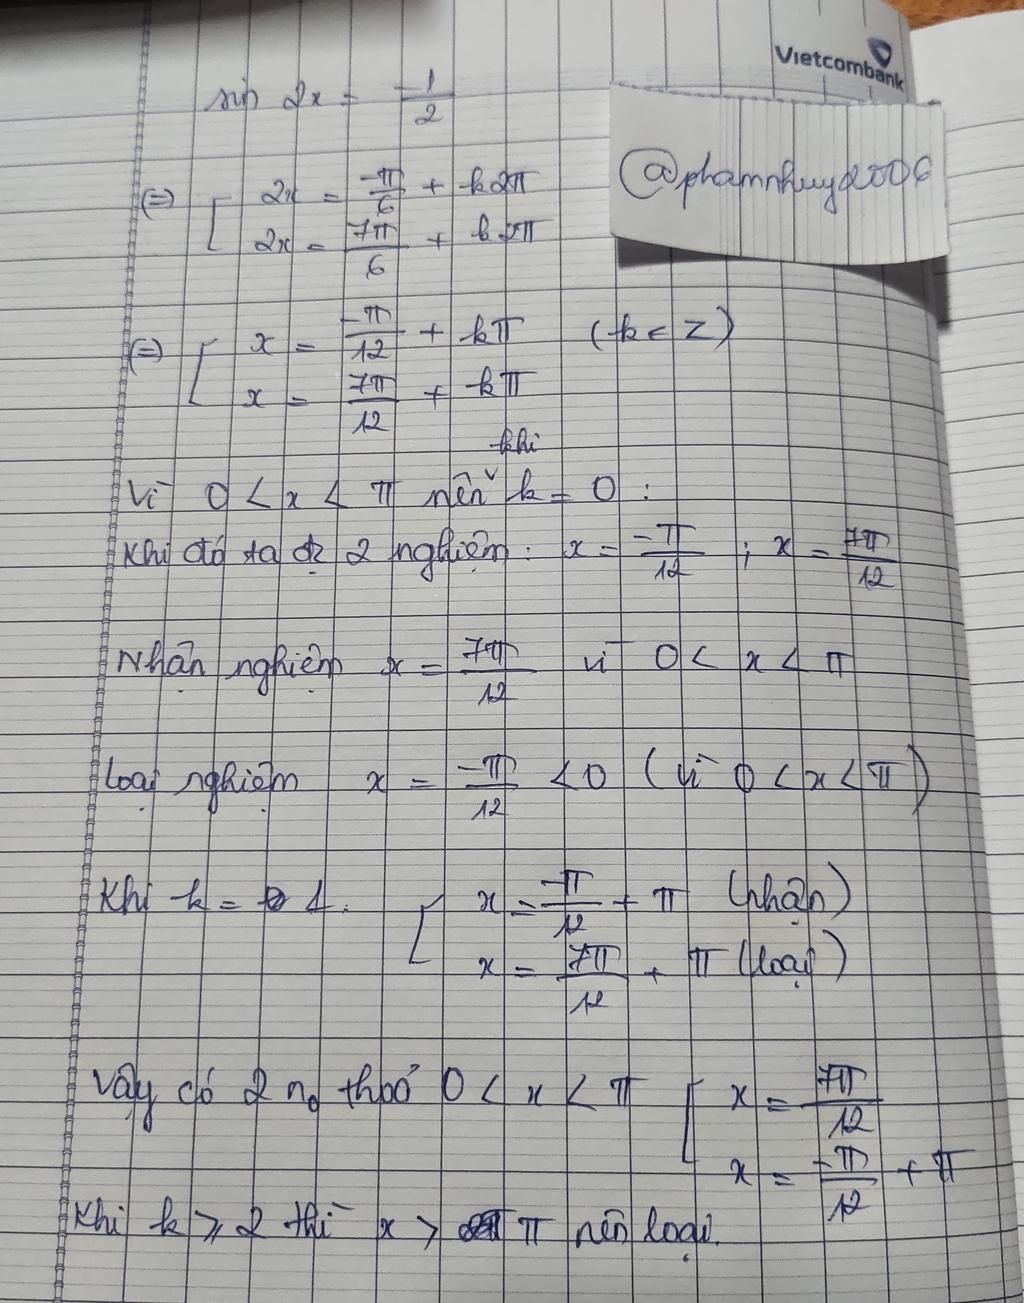 Vietcombank
@phamnhuy2006
sin 2x = -1/2
(=) [ 2x = -π/6 + k2π
2x = 7π/6 + k2π
(=) [ x = -π/12 + kπ (k ∈ Z)
x = 7π/12 + kπ
khi
Vì 0 < x < π nên ˅ k = 0 :
Khi đó ta đc 2 nghiệm : x = -π/12 ; x = 7π/12
Nhận nghiệm x = 7π/12 vì 0 < x < π
Loại nghiệm x = -π/12 < 0 (vì 0 < x < π)
Khi k = 1. [ x = -π/12 + π (nhận)
x = 7π/12 + π (loại)
Vậy có 2 no thoả 0 < x < π [ x = 7π/12
x = -π/12 + π
Khi k ⩾ 2 thì x > π nên loại.